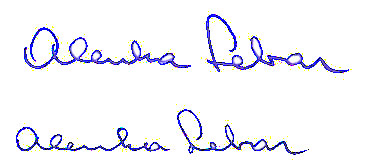 Alenka Lebar
Alenka Lebar